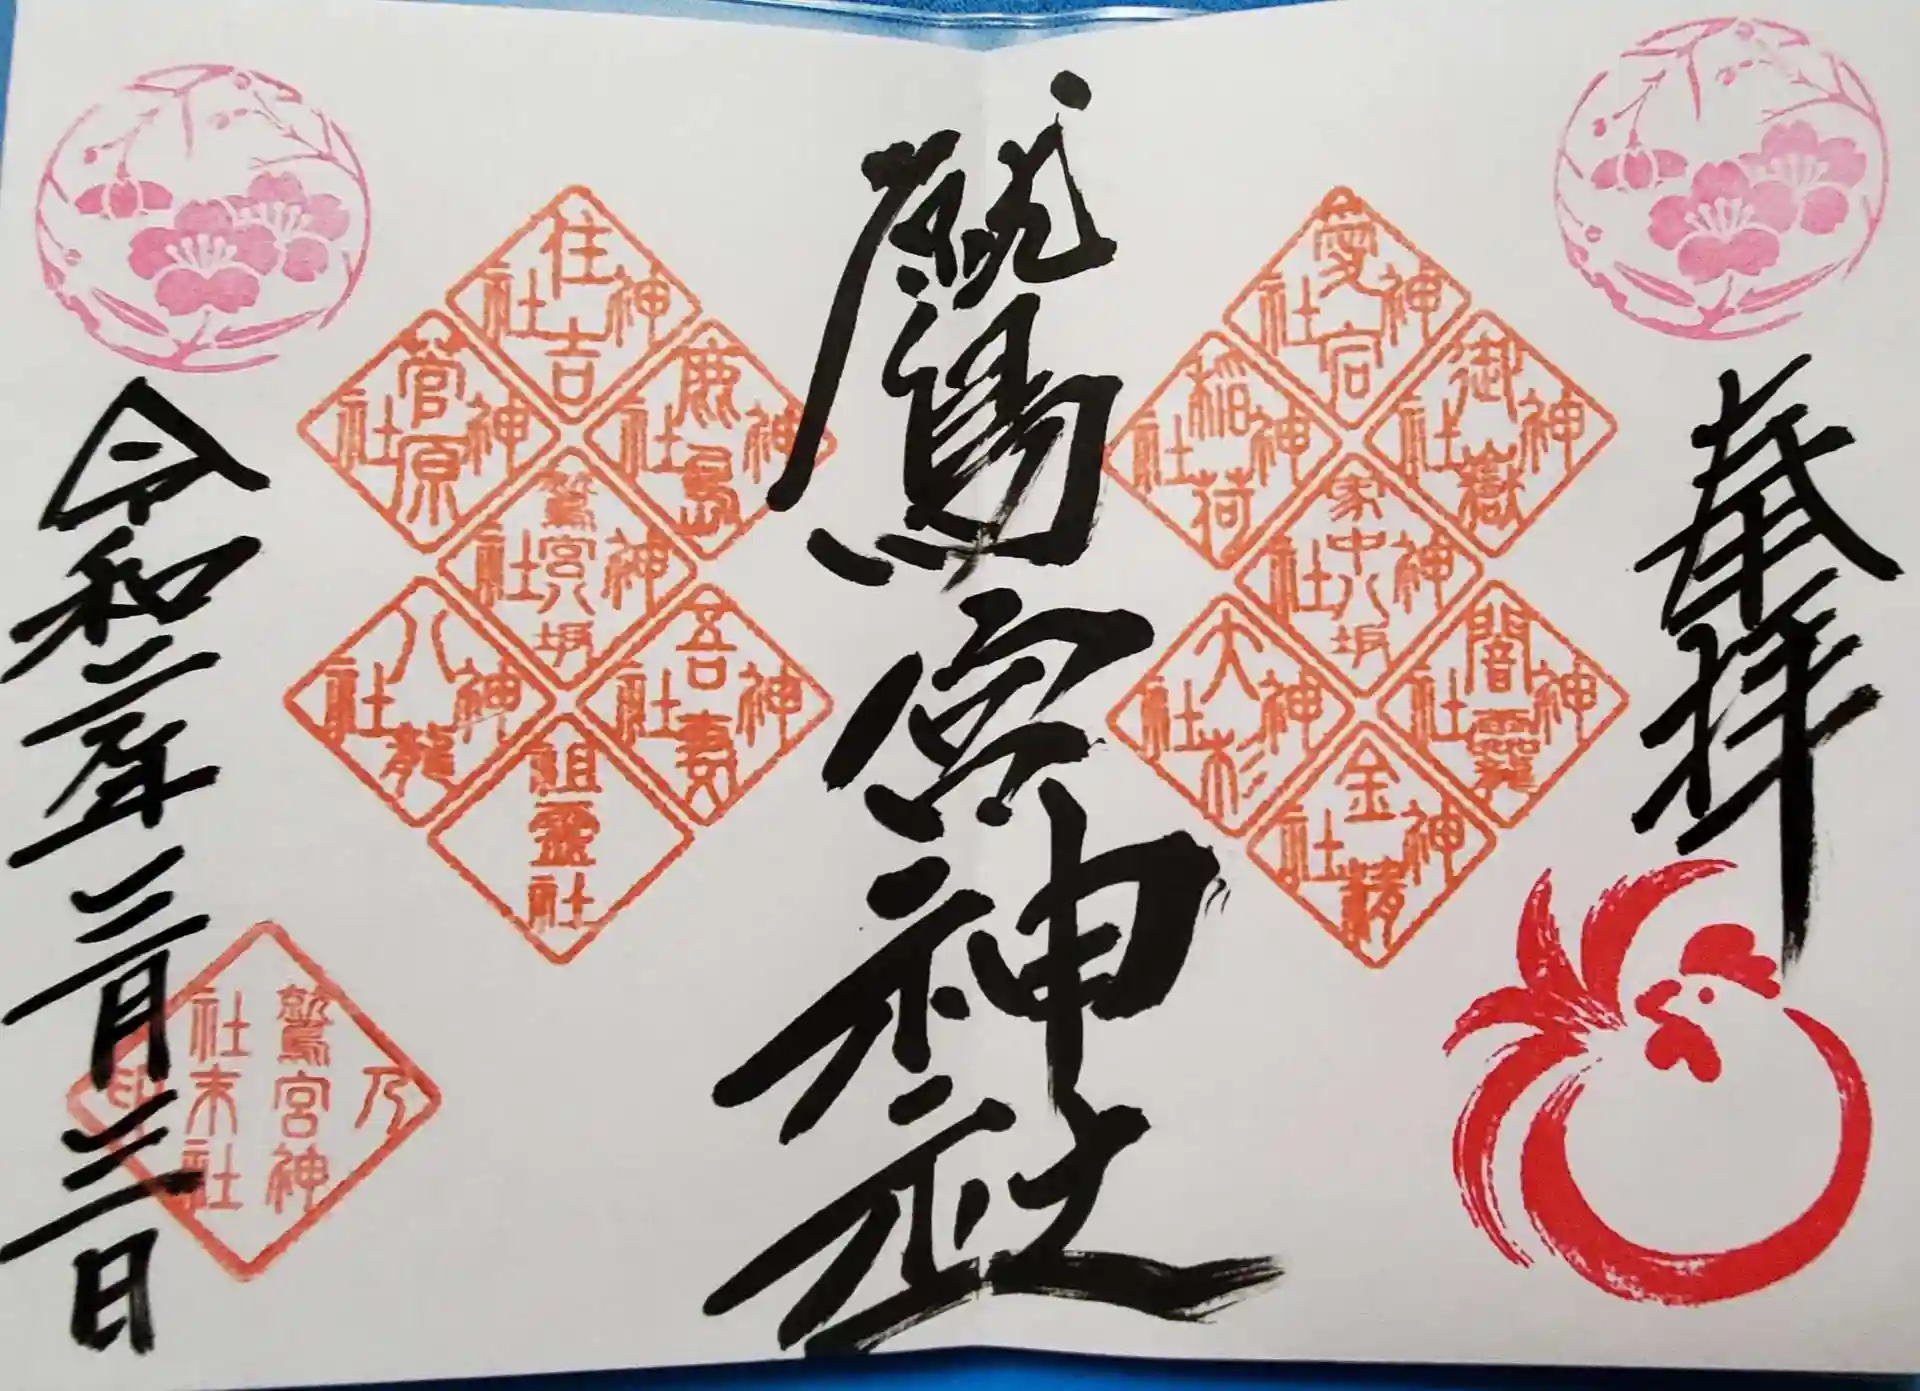 奉拝
愛宕神社
御嶽神社
稲荷神社
家中八坂神社
闇龗神社
大杉神社
金精神社
鷲宮神社
住吉神社
鹿島神社
菅原神社
鷲宮八坂神社
吾妻神社
八龍神社
祖霊社
令和二年三月三日
鷲宮神社末社乃印